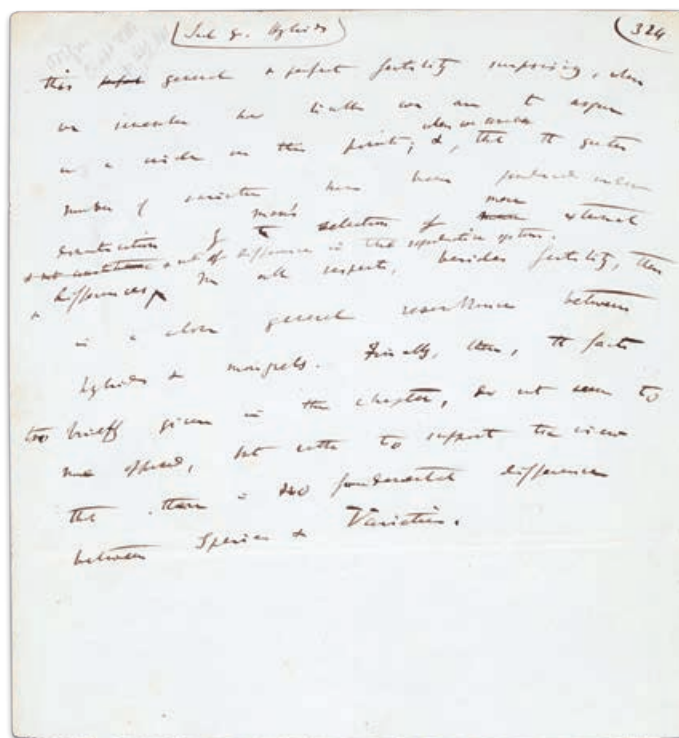 Sect 8. Hybrids 324
this perfect general & perfect fertility surprising, when
we remember how liable we are to argue
in a circle on this point; & when we remember
that the greater
number of varieties have been produced under
domestication by man's selection of mere external
& not of differences in the reproductive system.
differences In all respects, besides fertility, there
is a close general resemblance between
hybrids & mongrels. Finally, then, the facts
too briefly given in this chapter, do not seem to
me opposed, but rather to support the view
that there is no fundamental difference
between Species & Varieties.